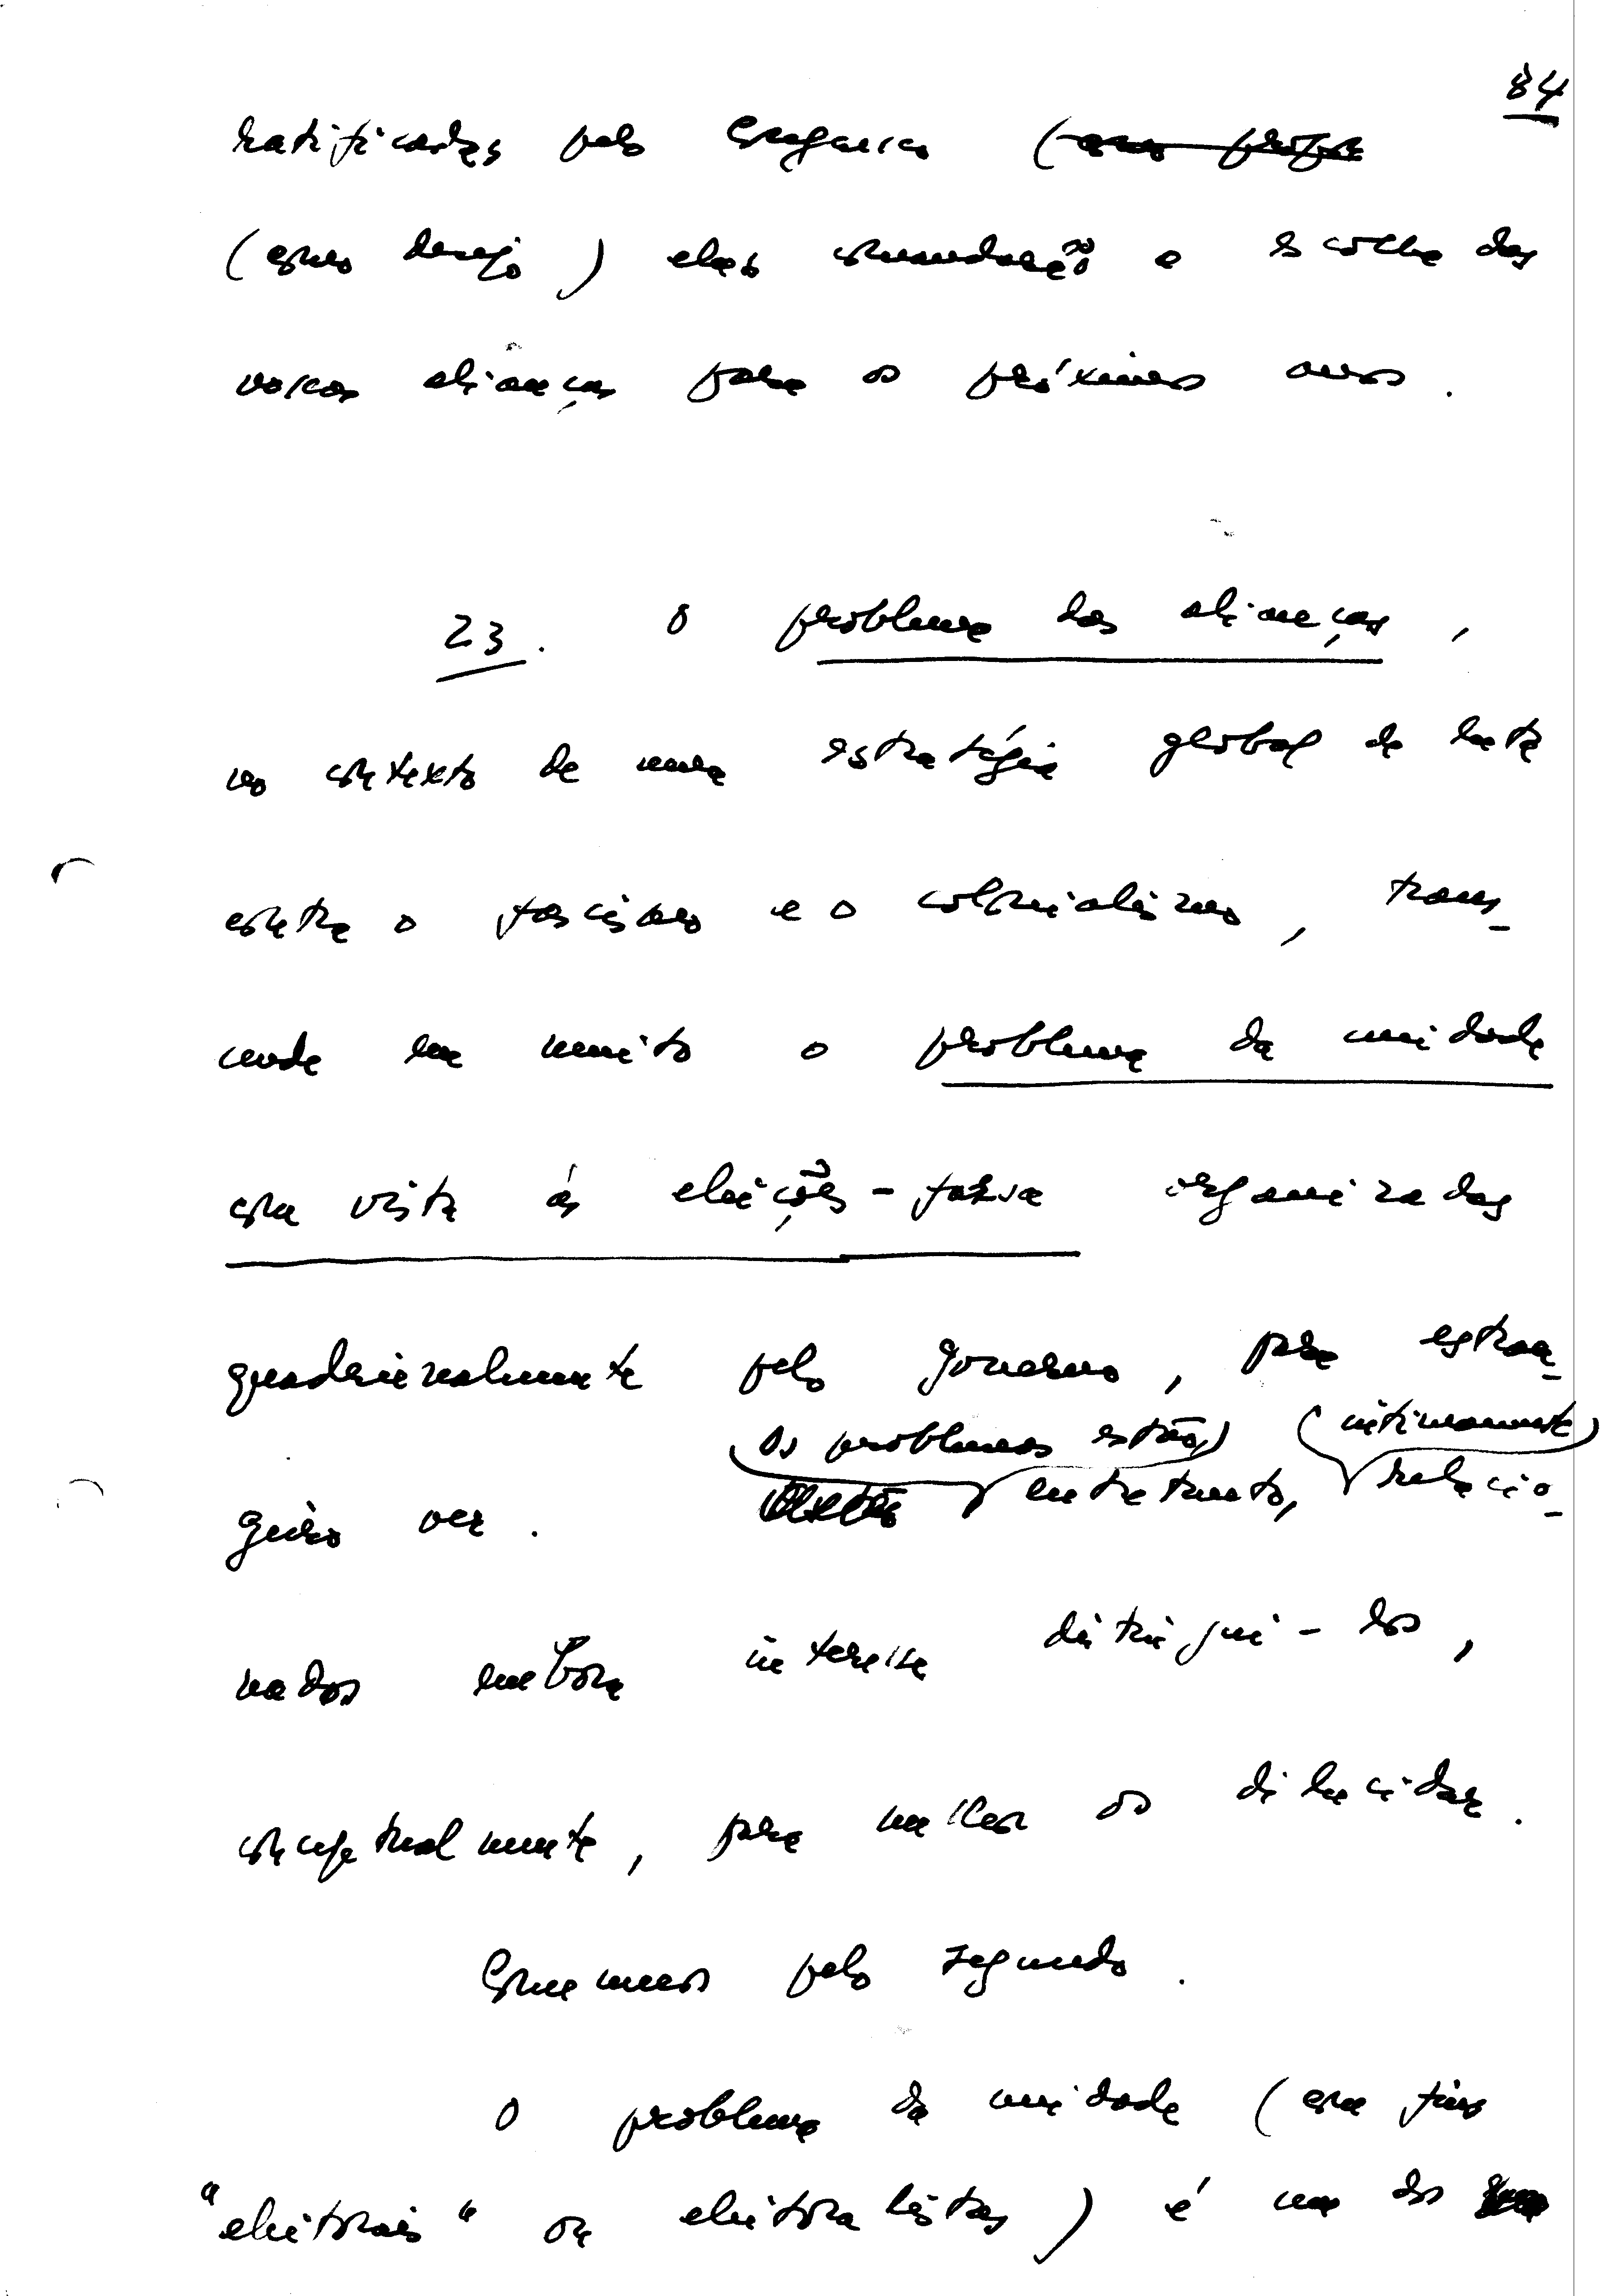 84
ratificadas pelo Congresso (
(como desejo) elas comandarão a escolha das
nossas alianças para os próximos anos.
23. O problema das alianças,
no contexto de uma estratégia global de luta
contra o fascismo e o colonialismo, trans-
cende em muito o problema da unidade
com vista às eleições-farsa organizadas
quadrienalmente pelo governo, para estran-
geiro ver. Os problemas estão, entretanto, intimamente relacio-
nados embora interesse distingui-los,
conceptualmente, para melhor os dilucidar.
Comecemos pelo segundo.
O problema da unidade (com fins
"eleitorais" ou eleitoralistas) é um dos